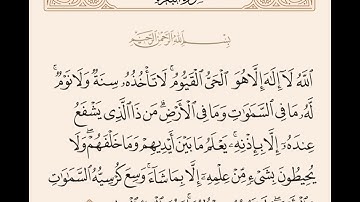 بِسْمِ اللَّهِ الرَّحْمَٰنِ الرَّحِيمِ
اللَّهُ لَا إِلَٰهَ إِلَّا هُوَ الْحَيُّ الْقَيُّومُ ۚ لَا تَأْخُذُهُ سِنَةٌ وَلَا نَوْمٌ ۚ
لَّهُ مَا فِي السَّمَٰوَٰتِ وَمَا فِي الْأَرْضِ ۗ مَن ذَا الَّذِي يَشْفَعُ
عِندَهُ إِلَّا بِإِذْنِهِ ۚ يَعْلَمُ مَا بَيْنَ أَيْدِيهِمْ وَمَا خَلْفَهُمْ ۖ وَلَا
يُحِيطُونَ بِشَيْءٍ مِّنْ عِلْمِهِ إِلَّا بِمَا شَاءَ ۚ وَسِعَ كُرْسِيُّهُ السَّمَٰوَٰتِ